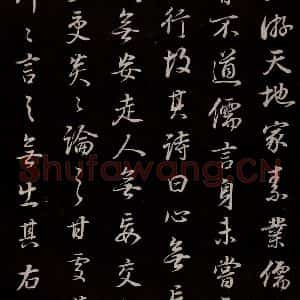 游天地家素業儒
不道儒言身未嘗
行故其詩曰心無妄
無妄走人無妄交
受炎々論之甘處其
々言之無出其右
Shufawang.CN